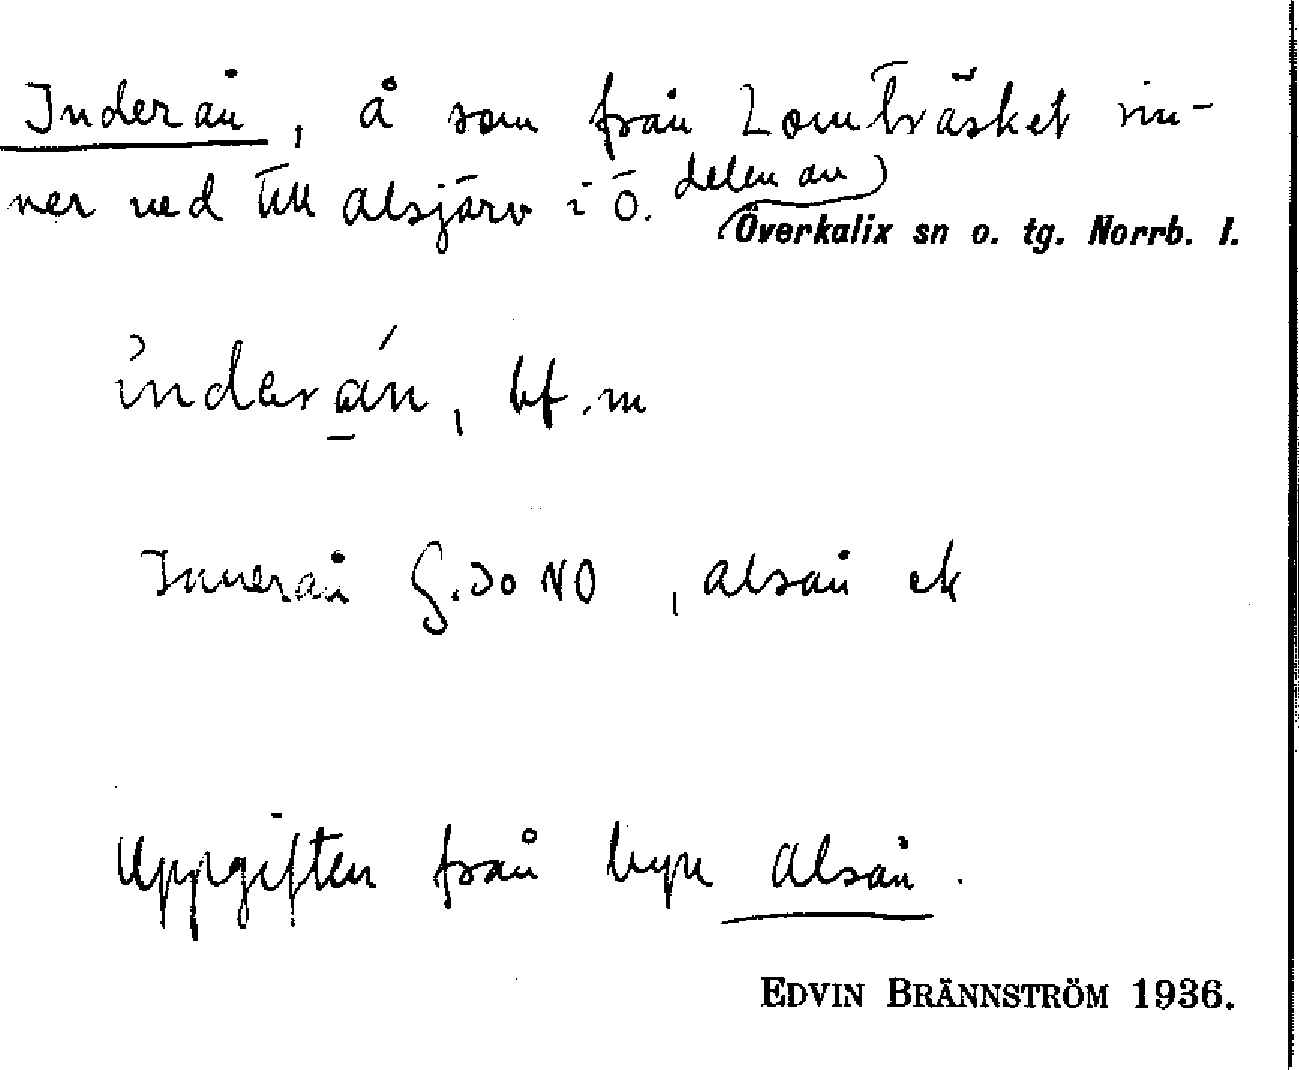 Inderån, å som från Lomträsket rin-
ner ned till Alsjärv i ö. delen av
Överkalix sn o. tg. Norrb. l.
ìnderán, bf. m
Innerån G. 30 NO, Alsån ek
Uppgiften från byn Alsån.
EDVIN BRÄNNSTRÖM 1936.